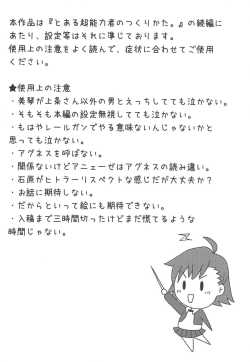 本作品は『とある超能力者のつくりかた。』の続編に
あたり、設定等はそれに準じております。
使用上の注意をよく読んで、症状に合わせてご使用
ください。
★使用上の注意
・美琴が上条さん以外の男とえっちしてても泣かない。
・そもそも本編の設定無視してても泣かない。
・もはやレールガンでやる意味ないんじゃないかと
思っても泣かない。
・アグネスを呼ばない。
・関係ないけどアニェーゼはアグネスの読み違い。
・石原がヒトラーリスペクトな感じだが大丈夫か?
・お話に期待しない。
・だからといって絵にも期待できない。
・入稿まで三時間切ったけどまだ慌てるような
時間じゃない。